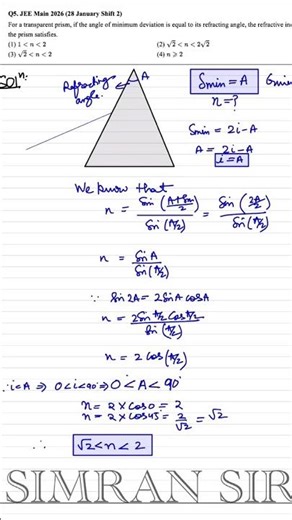 Q5. JEE Main 2026 (28 January Shift 2)
For a transparent prism, if the angle of minimum deviation is equal to its refracting angle, the refractive in
the prism satisfies.
(1) 1 < n < 2
(2) √2 < n < 2√2
(3) √2 < n < 2
(4) n ⩾ 2
Solⁿ.
Refracting angle.
A
δmin = A
n=?
δmin = 2i-A
A = 2i-A
i=A
We know that
n = Sin((A+δm)/2) / Sin(A/2) = Sin(2A/2) / Sin(A/2)
n = SinA / Sin(A/2)
∵ Sin2A = 2SinA cosA
n = 2Sin A/2 Cos A/2 / Sin(A/2)
n = 2 cos(A/2)
∵ i=A ⇒ 0<i<90° ⇒ 0<A<90°
n = 2 x cos0 = 2
n = 2 x cos45 = 2/√2 = √2
∴ √2<n<2
SIMRAN SIR